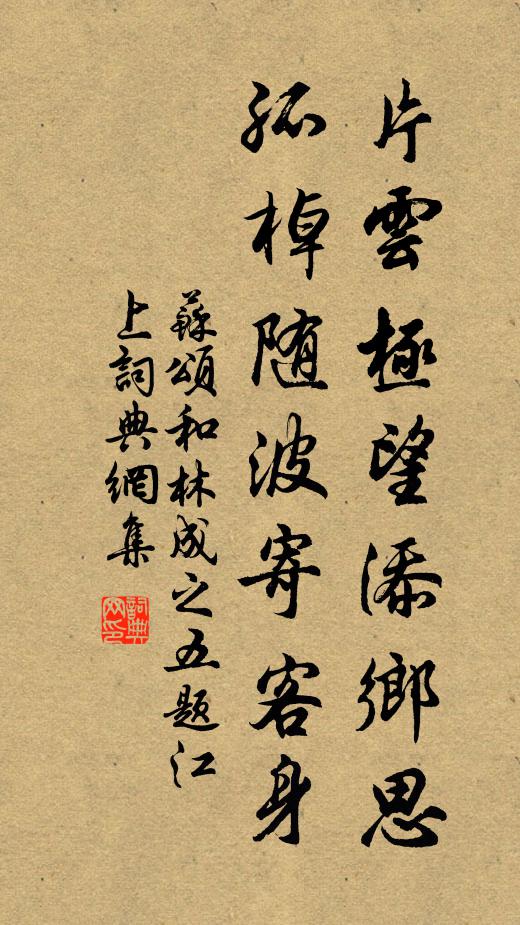 片雲極望添鄉思
孤棹随波寄客身
蘇頌和林成之五题江
上詞典網集
詞典
网印